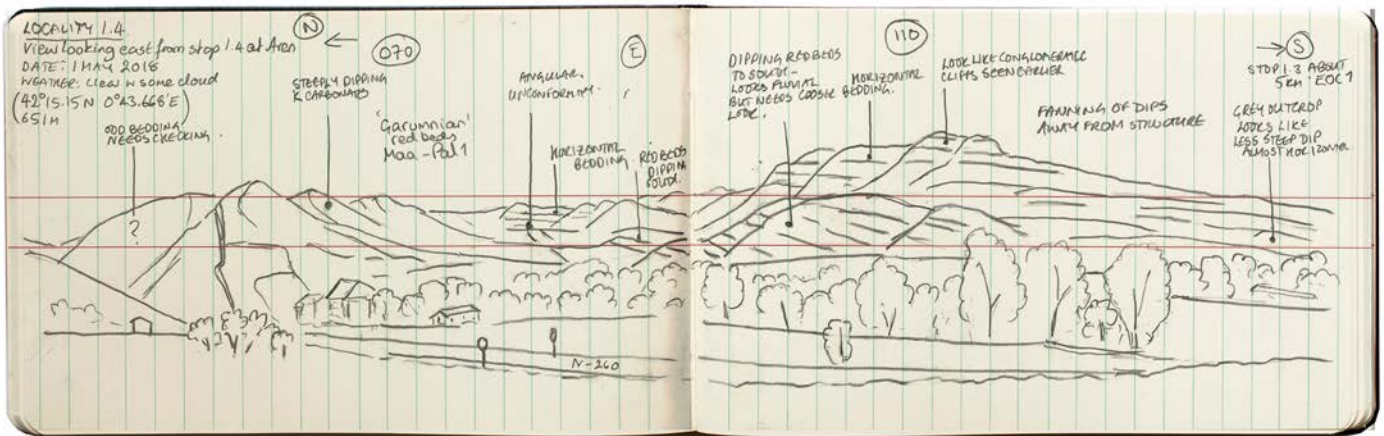 LOCALITY 1.4.
View looking east from stop 1.4 at Aren
DATE: 1 MAY 2018
WEATHER: Clear w some cloud
(42°15.15N 0°43.668'E)
651m
ODD BEDDING,
NEEDS CHECKING.
?
N
070
STEEPLY DIPPING
K CARBONATES
'Garumnian'
red beds
Maa - Pal?
ANGULAR
UNCONFORMITY.
HORIZONTAL
BEDDING
E
RED BEDS
DIPPING
SOUTH.
N-260
DIPPING RED BEDS
TO SOUTH -
LOOKS FLUVIAL
BUT NEEDS CLOSER
LOOK.
HORIZONTAL
BEDDING.
110
LOOK LIKE CONGLOMERATE
CLIFFS SEEN EARLIER
FANNING OF DIPS
AWAY FROM STRUCTURE
S
STOP 1.3 ABOUT
5km.
GREY OUTCROP
LOOKS LIKE
LESS STEEP DIP
ALMOST HORIZONTAL